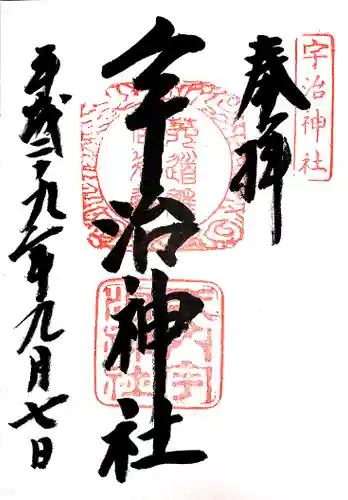 宇治神社
奉拝
宇治神社
平成二十九年九月七日